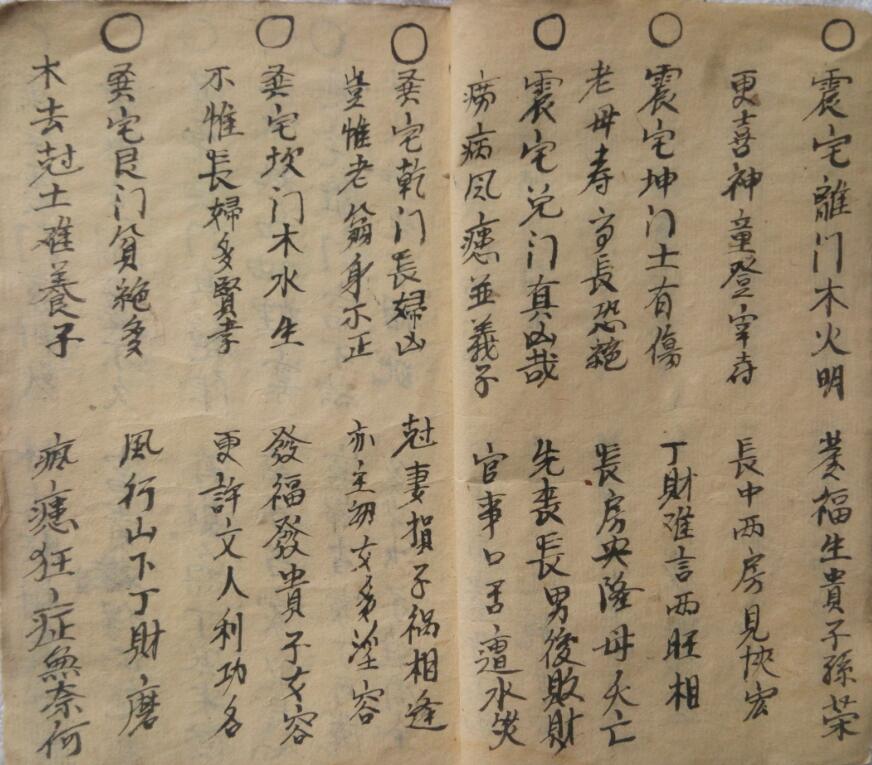 ○震宅離门木火明 發福生貴子孫榮
更喜神童登宰府 長中两房見恢宏
○震宅坤门土有傷 丁財难言两旺相
老母寿高長恐絶 長房央隆母夭亡
○震宅兑门真凶哉 先喪長男後敗財
痨病风痣並義子 官事口舌遭水災
○巽宅乾门長婦凶 尅妻損子祸相逢
豈惟老翁身不正 亦主幼女多淫容
○巽宅坎门木水生 發福發貴子女容
不惟長婦多賢孝 更許文人利功名
○巽宅艮门貧絶多 風行山下丁財磨
木去尅土难養子 瘋痣狂症無奈何